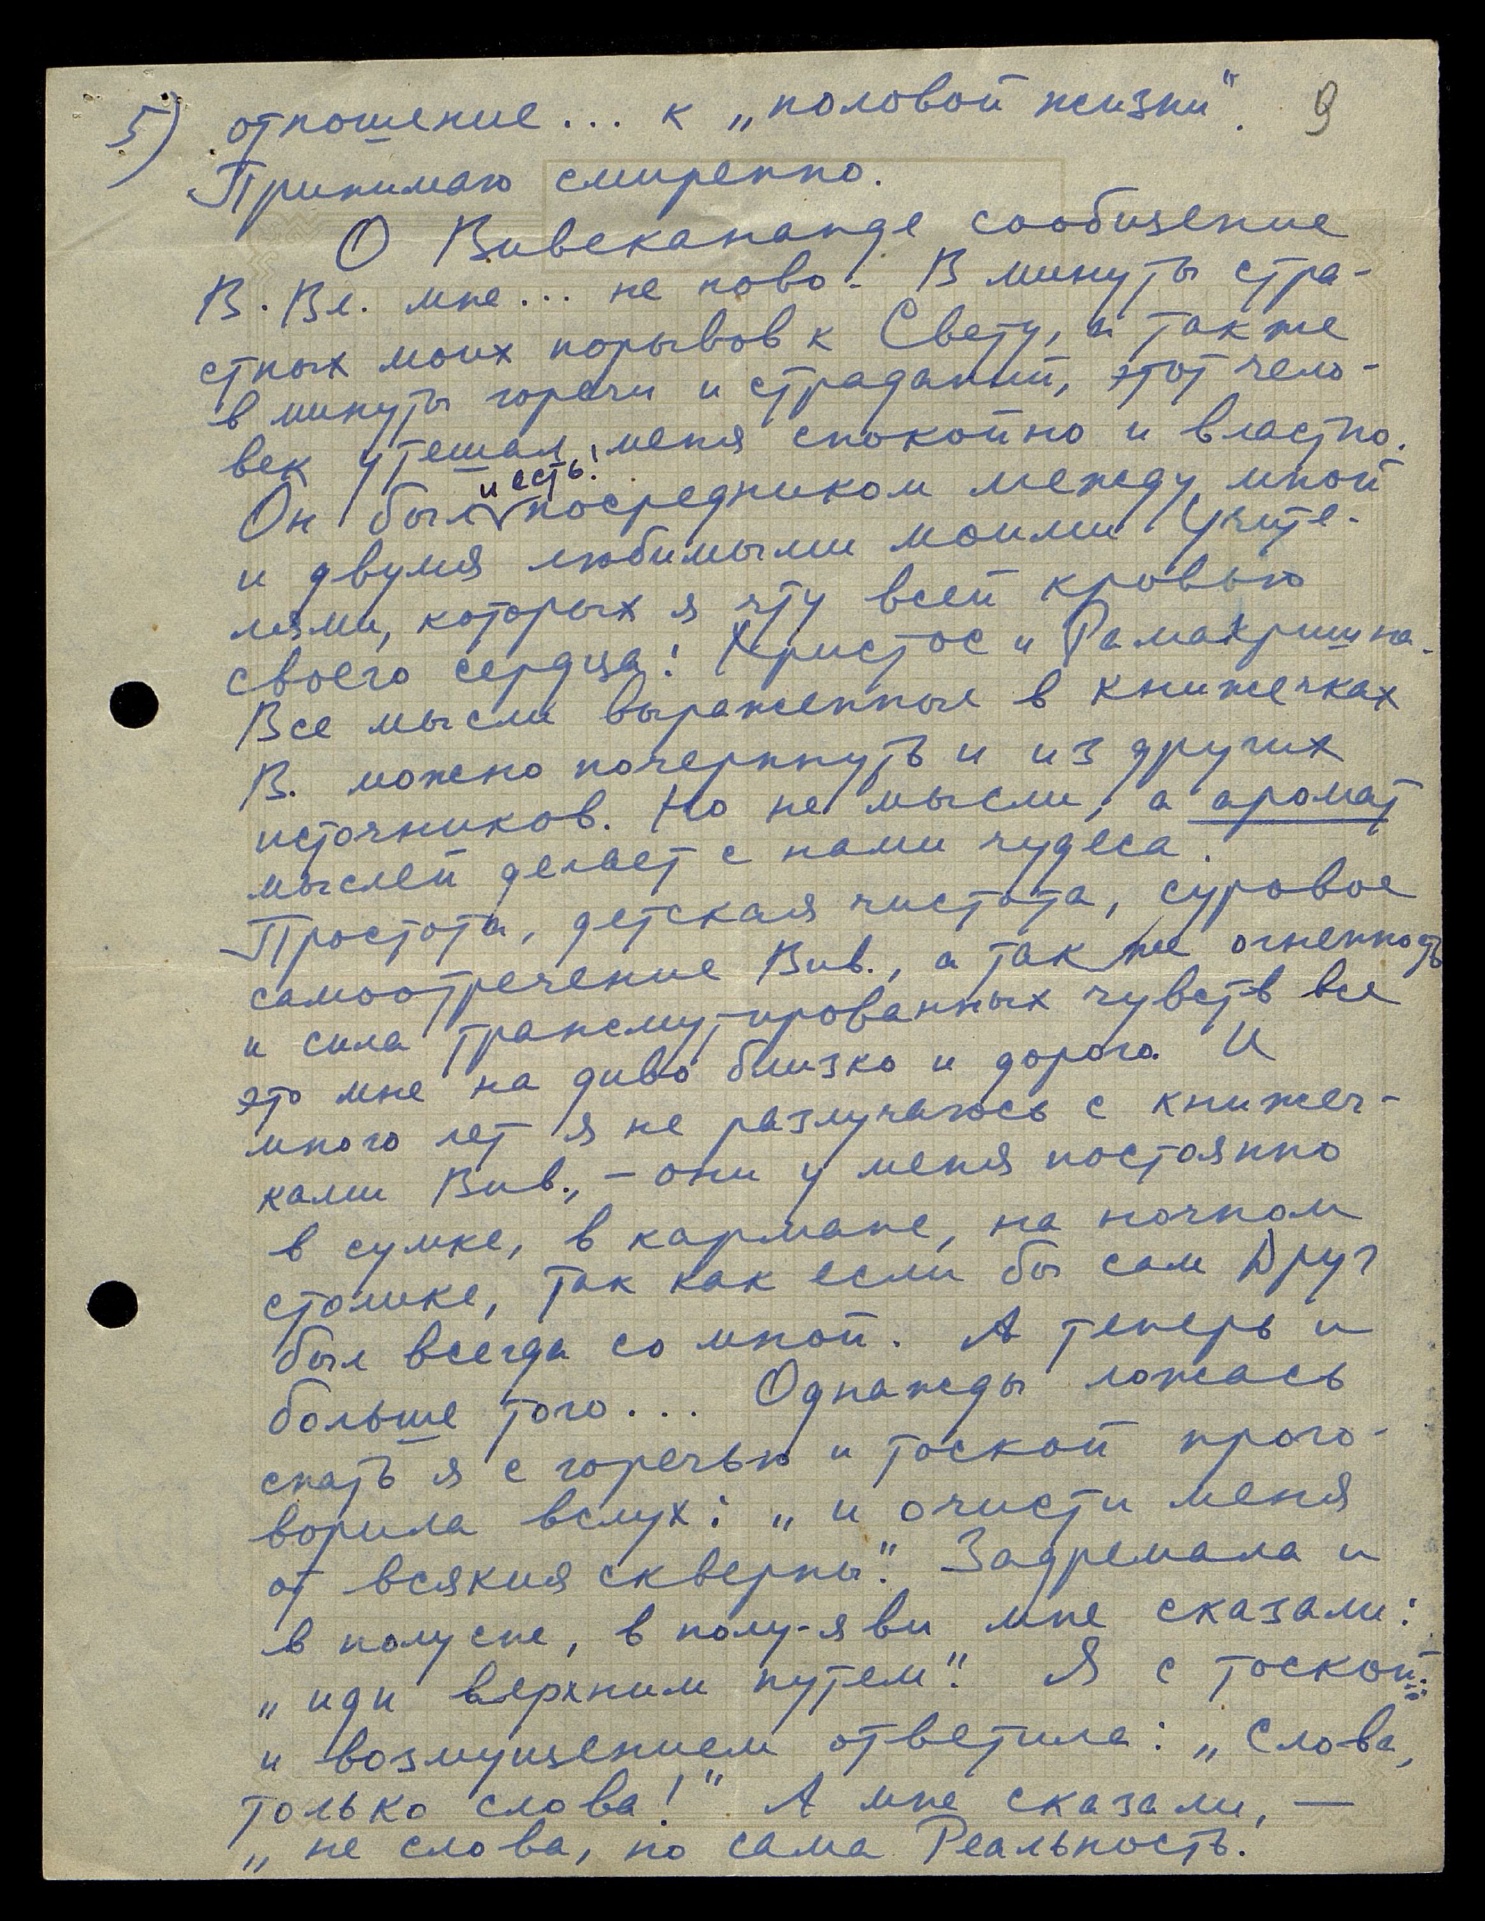 5) отношение... к „половой жизни". 9
Принимаю смиренно.
О Вивекананде сообщение
В. Вл. мне... не ново. В минуты стра-
стных моих порывов к Свету, а также
в минуты горечи и страданий, этот чело-
век утешал меня спокойно и властно.
и есть!
Он был посредником между мной
и двумя любимыми моими Учите-
лями, которых я чту всей кровью
своего сердца! Христос и Рамакришна.
Все мысли выраженные в книжечках
В. можно почерпнуть и из других
источников. Но не мысли, а аромат
мыслей делает с нами чудеса.
Простота, детская чистота, суровое
самоотречение Вив., а так же огненность
и сила трансмутированных чувств все
это мне на диво близко и дорого. И
много лет я не разлучаюсь с книжеч-
ками Вив., – они у меня постоянно
в сумке, в кармане, на ночном
столике, так как если бы сам Друг
был всегда со мной. А теперь и
больше того... Однажды ложась
спать я с горечью и тоской прого-
ворила вслух: „и очисти меня
от всякия скверны". Задремала и
в полусне, в полу-яви мне сказали:
„иди верхним путем". Я с тоской
и возмущением ответила: „Слова,
только слова!" А мне сказали, —
„не слова, но сама Реальность.